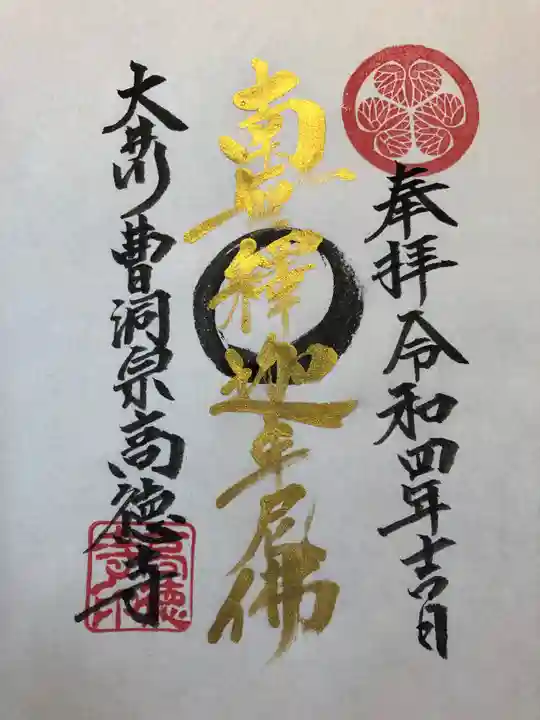 奉拝 令和四年吉日
南無釋迦牟尼佛
大井川 曹洞宗高徳寺
高徳
寺印